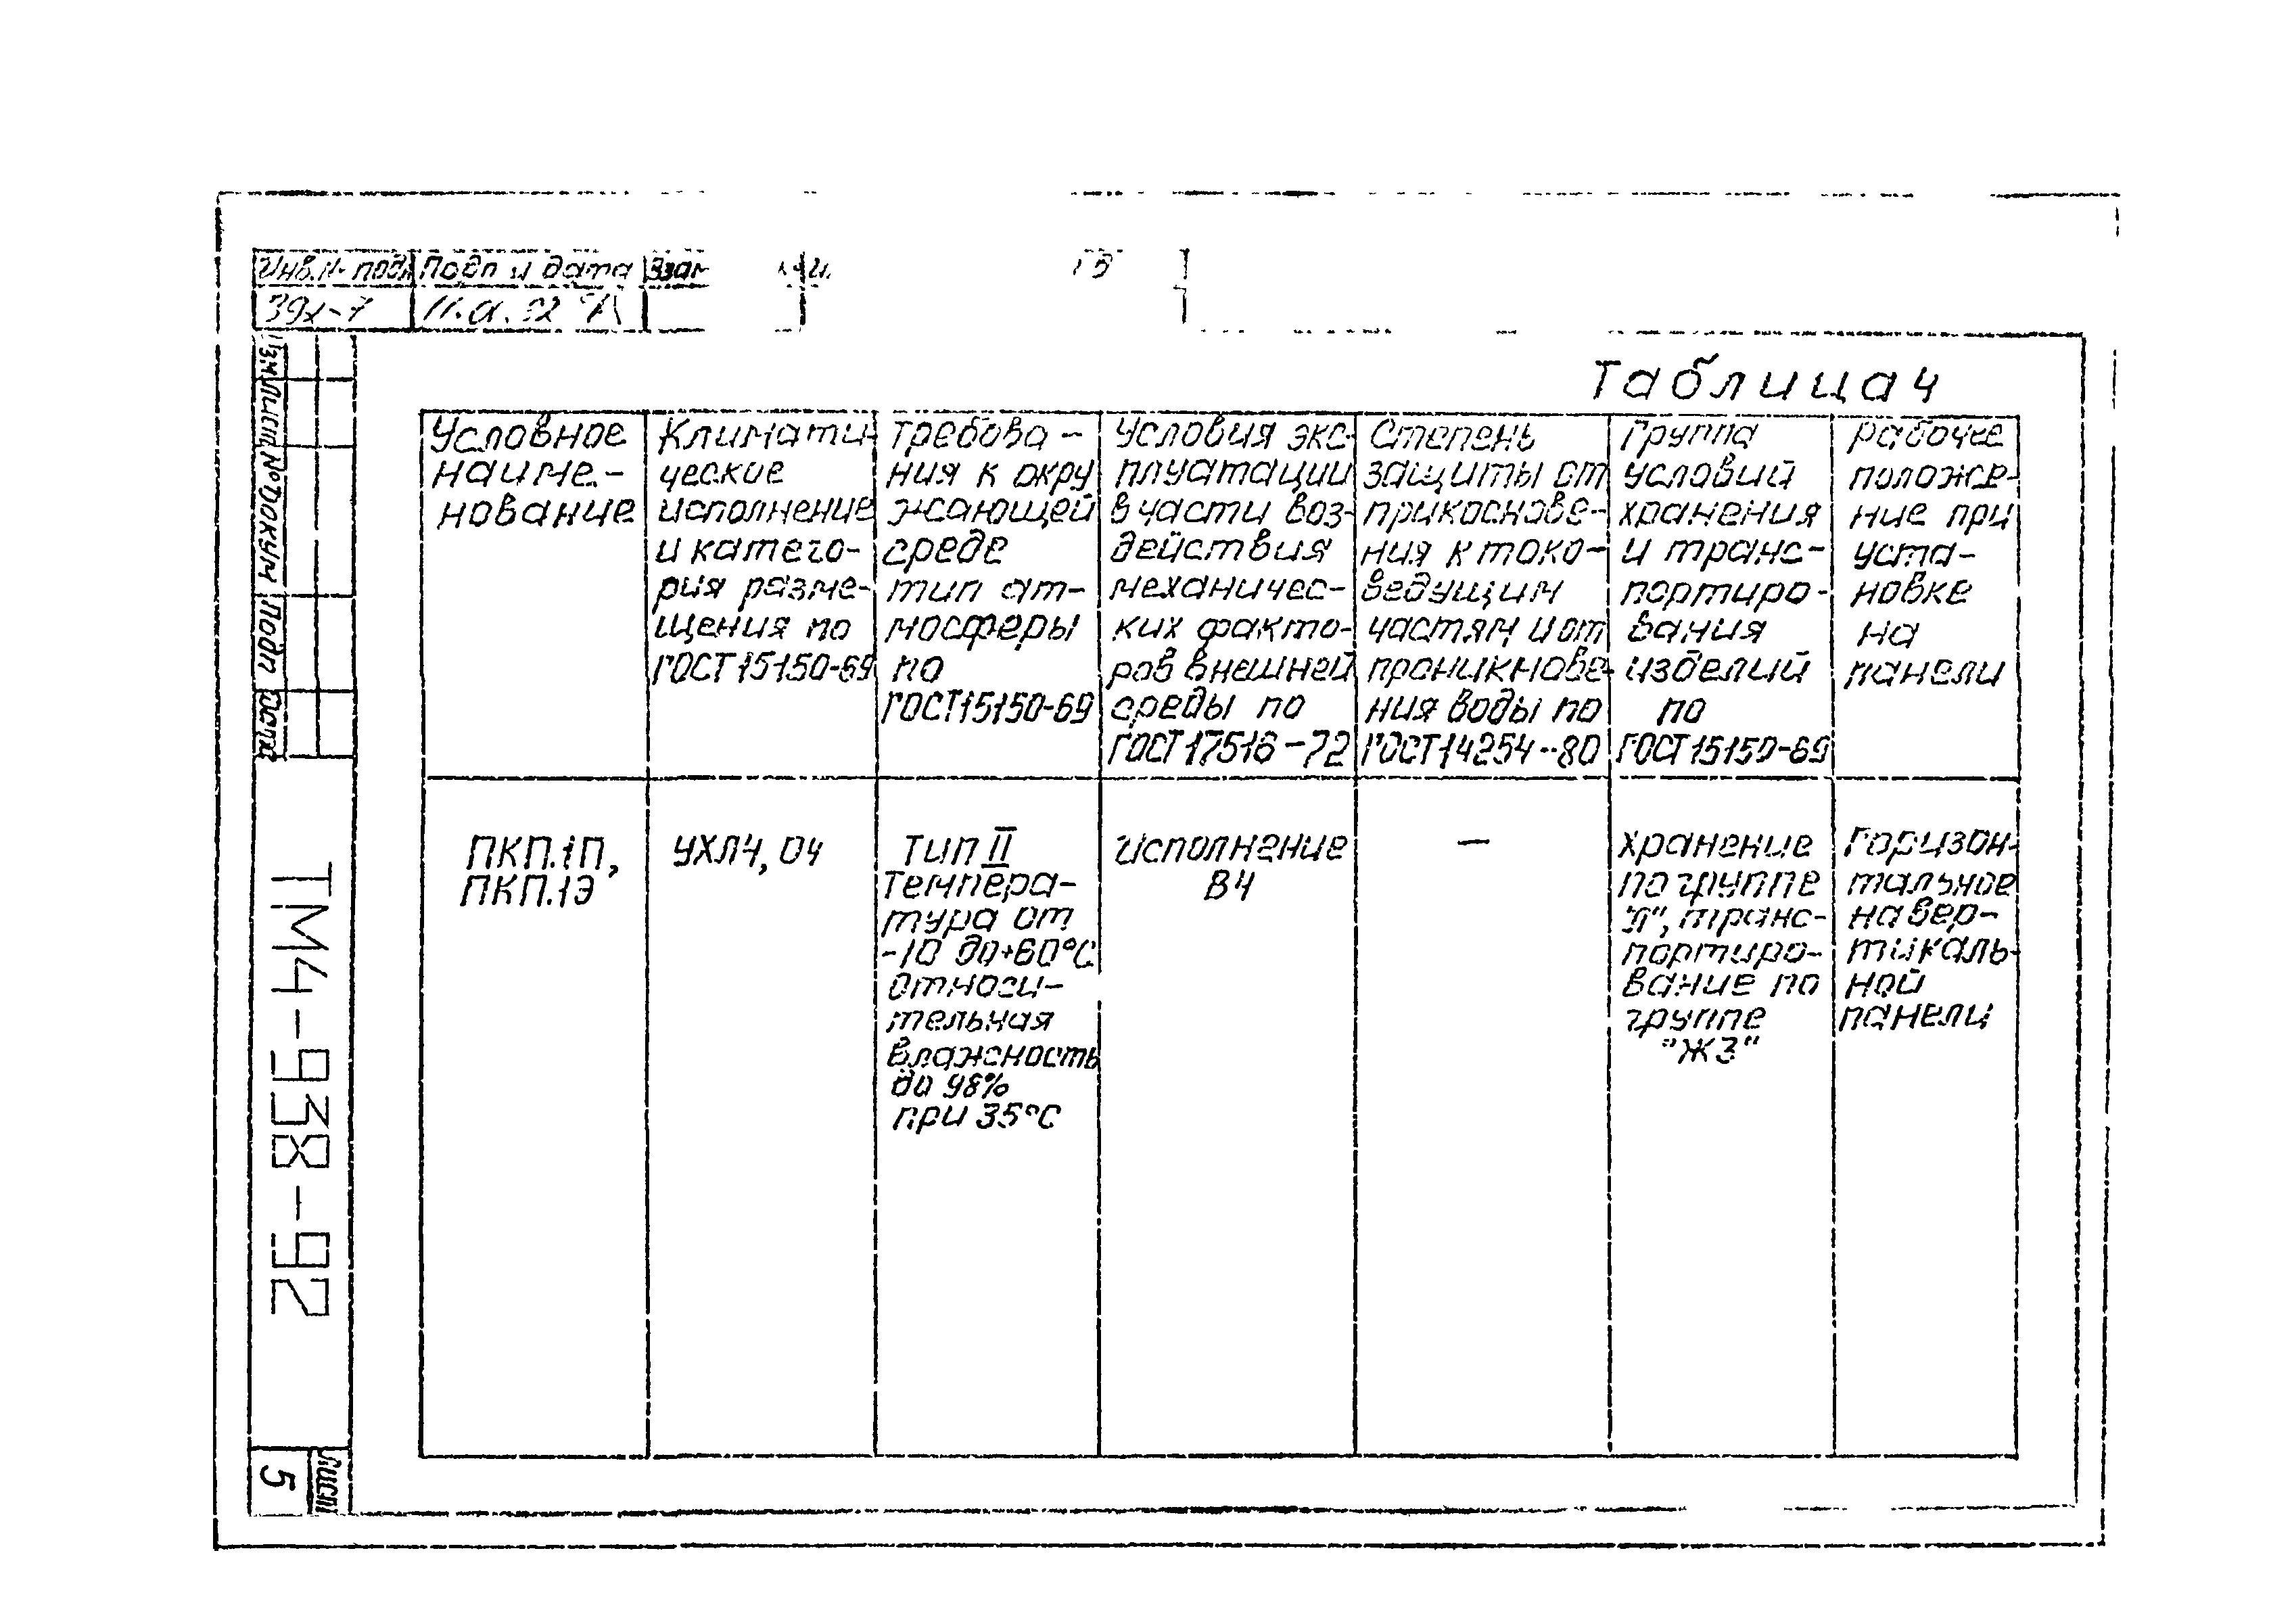 Инв.№ подл Подп и дата Взам
11.01.92
Таблица 4
Условное
наиме-
нование
Климати-
ческие
исполнение
и катего-
рия разме-
щения по
ГОСТ 15150-69
Требова-
ния к окру
жающей
среде
тип ат-
мосферы
по
ГОСТ 15150-69
Условия экс-
плуатации
в части воз-
действия
механичес-
ких факто-
ров внешней
среды по
ГОСТ 17516-72
Степень
защиты от
прикоснове-
ния к токо-
ведущим
частям и от
проникнове-
ния воды по
ГОСТ 14254-80
Группа
условий
хранения
и транс-
портиро-
вания
изделий
по
ГОСТ 15150-69
Рабочее
положе-
ние при
уста-
новке
на
панели
ПКП.1П,
ПКП.1Э
УХЛ4, О4
Тип II
Темпера-
тура от
-10 до +60°С
Относи-
тельная
влажность
до 98%
при 35°С
Исполнение
В4
—
Хранение
по группе
"Л", транс-
портиро-
вание по
группе
"Ж3"
Горизон-
тальное
на вер-
тикаль-
ной
панели
Изм Лист № докум Подп Дата
ТМ4-938-92
Лист
5